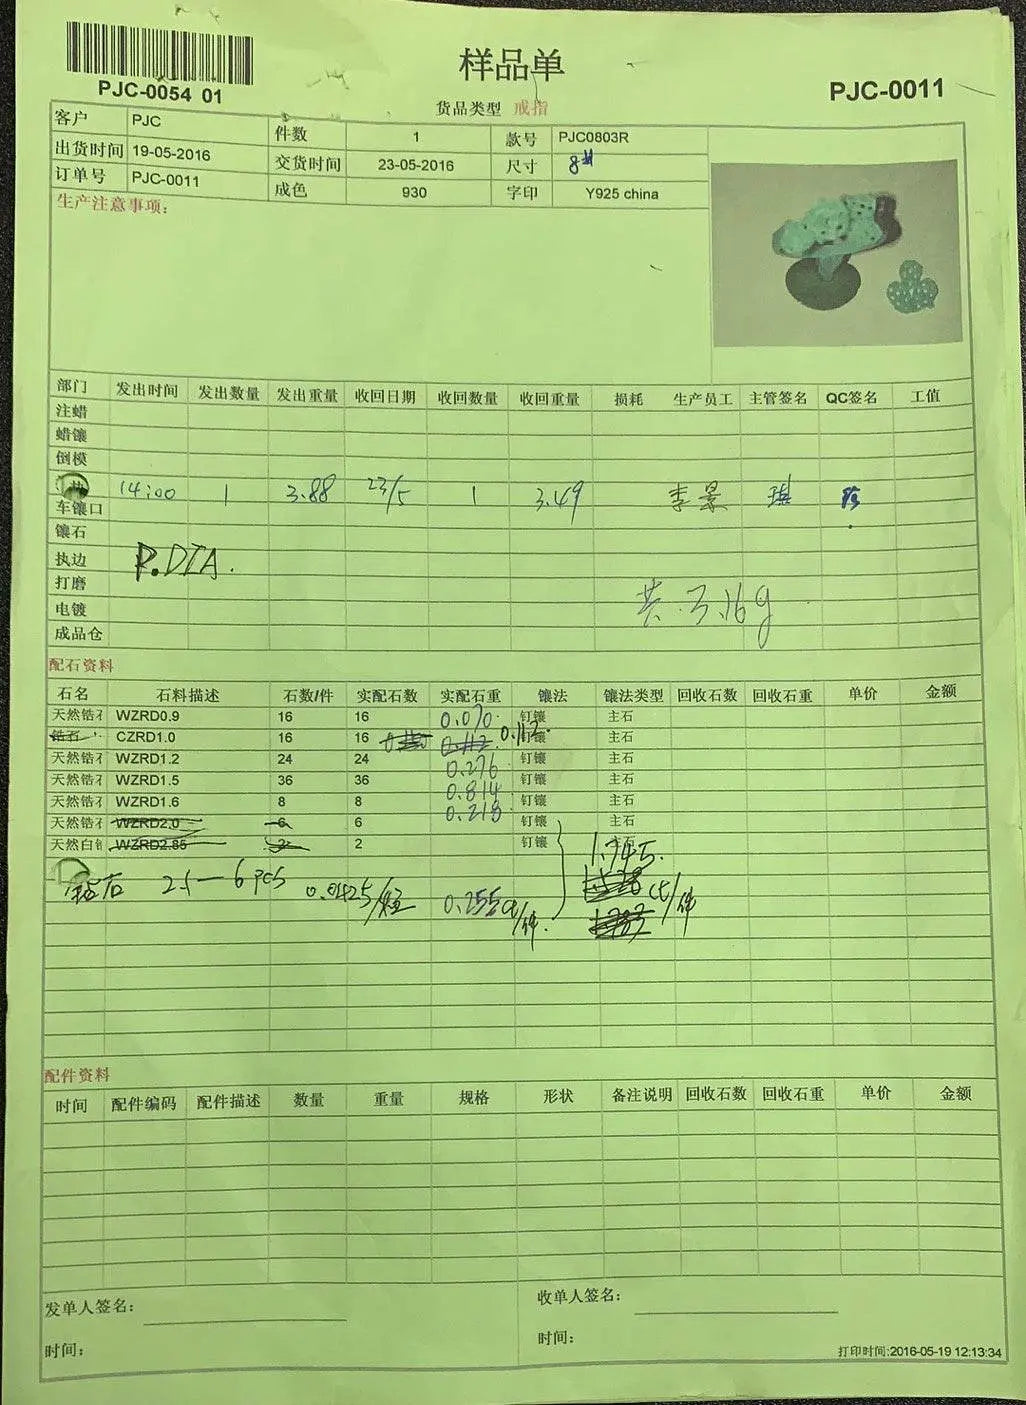 样品单
PJC-0054 01
货品类型 戒指
PJC-0011
客户 PJC 件数 1 款号 PJC0803R
出货时间 19-05-2016 交货时间 23-05-2016 尺寸 8#
订单号 PJC-0011 成色 930 字印 Y925 china
生产注意事项:
部门 发出时间 发出数量 发出重量 收回日期 收回数量 收回重量 损耗 生产员工 主管签名 QC签名 工值
注蜡
蜡镶
倒模
执 14:00 1 3.88 23/5 1 3.49 李景 琪
车镶口
镶石
执边 R.DIA.
打磨
电镀 共.3.16g
成品仓
配石资料
石名 石料描述 石数/件 实配石数 实配石重 镶法 镶法类型 回收石数 回收石重 单价 金额
天然锆石 WZRD0.9 16 16 0.070 钉镶 主石
锆石 CZRD1.0 16 16 0.112 0.112 钉镶 主石
天然锆石 WZRD1.2 24 24 0.276 钉镶 主石
天然锆石 WZRD1.5 36 36 0.814 钉镶 主石
天然锆石 WZRD1.6 8 8 0.218 钉镶 主石
天然锆石 WZRD2.0 6 6 钉镶 主石
天然白 WZRD2.85 2 2 钉镶 主石
1.745.
锆石 2.5—6pcs 0.0425/粒 0.255ct/件. ct/件
配件资料
时间 配件编码 配件描述 数量 重量 规格 形状 备注说明 回收石数 回收石重 单价 金额
发单人签名: 收单人签名:
时间: 时间:
打印时间:2016-05-19 12:13:34